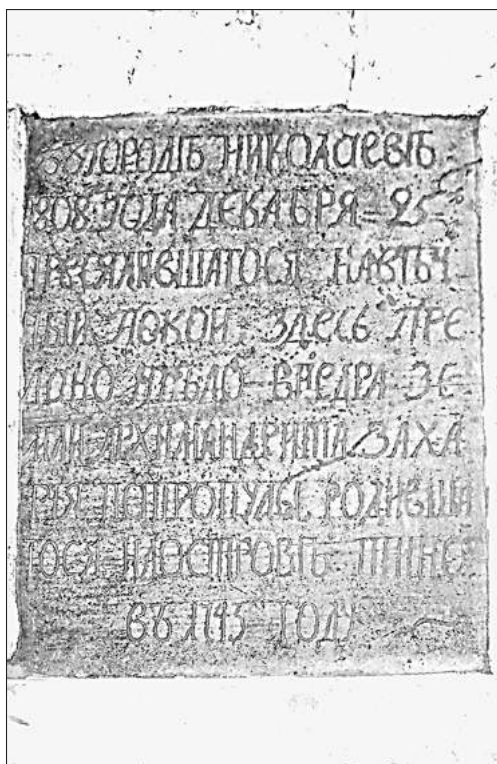 ВЪ ГОРОДѢ НИКОЛАЕВѢ
1808 ГОДА ДЕКАБРЯ = 25 =
ПРЕСЯЛИВШАГОСЯ НАВѢЧ
НЫЙ ПОКОЙ ЗДЕСЬ ПРЕ
ВНЕДРА ЗЕ
МЛИ АРХИМАНДРИТА ЗАХА
РЫЯ ПЕТРОПУЛЫ РОДИВША
ГОСЯ НАОСТРОВѢ ТИНЕ
ВЪ 1743 ГОДУ